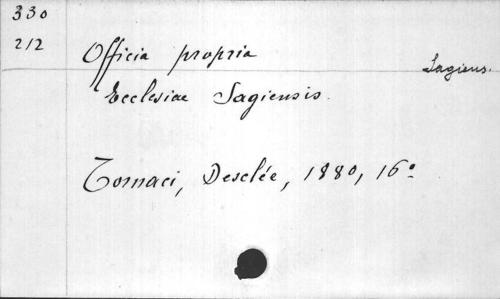 330
212
Officia propria
Sagiens.
Ecclesiae Sagiensis.
Tornaci, Desclée, 1880, 16º